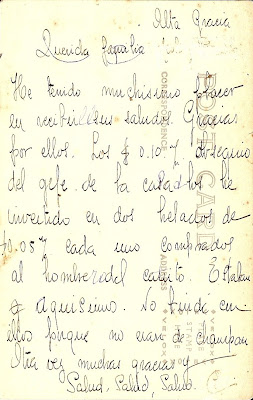 Alta Gracia
Querida familia
He tenido muchisimo placer
en recibir sus saludos. Gracias
por ellos. Los $ 0.10 y obsequio
del gefe de la casa los he
invertido en dos helados de
$0.05 cada uno comprados
al hombre del carrito. Estaban
riquisimos. No brinde con
ellos porque no eran de champan
Otra vez muchas gracias y
Salud, Salud, Salud
POST CARD
CORRESPONDENCE
ADDRESS
STAMP
HERE